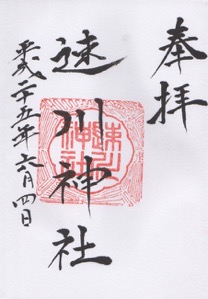 奉拝
速川神社
速川神社
平成二十五年六月四日